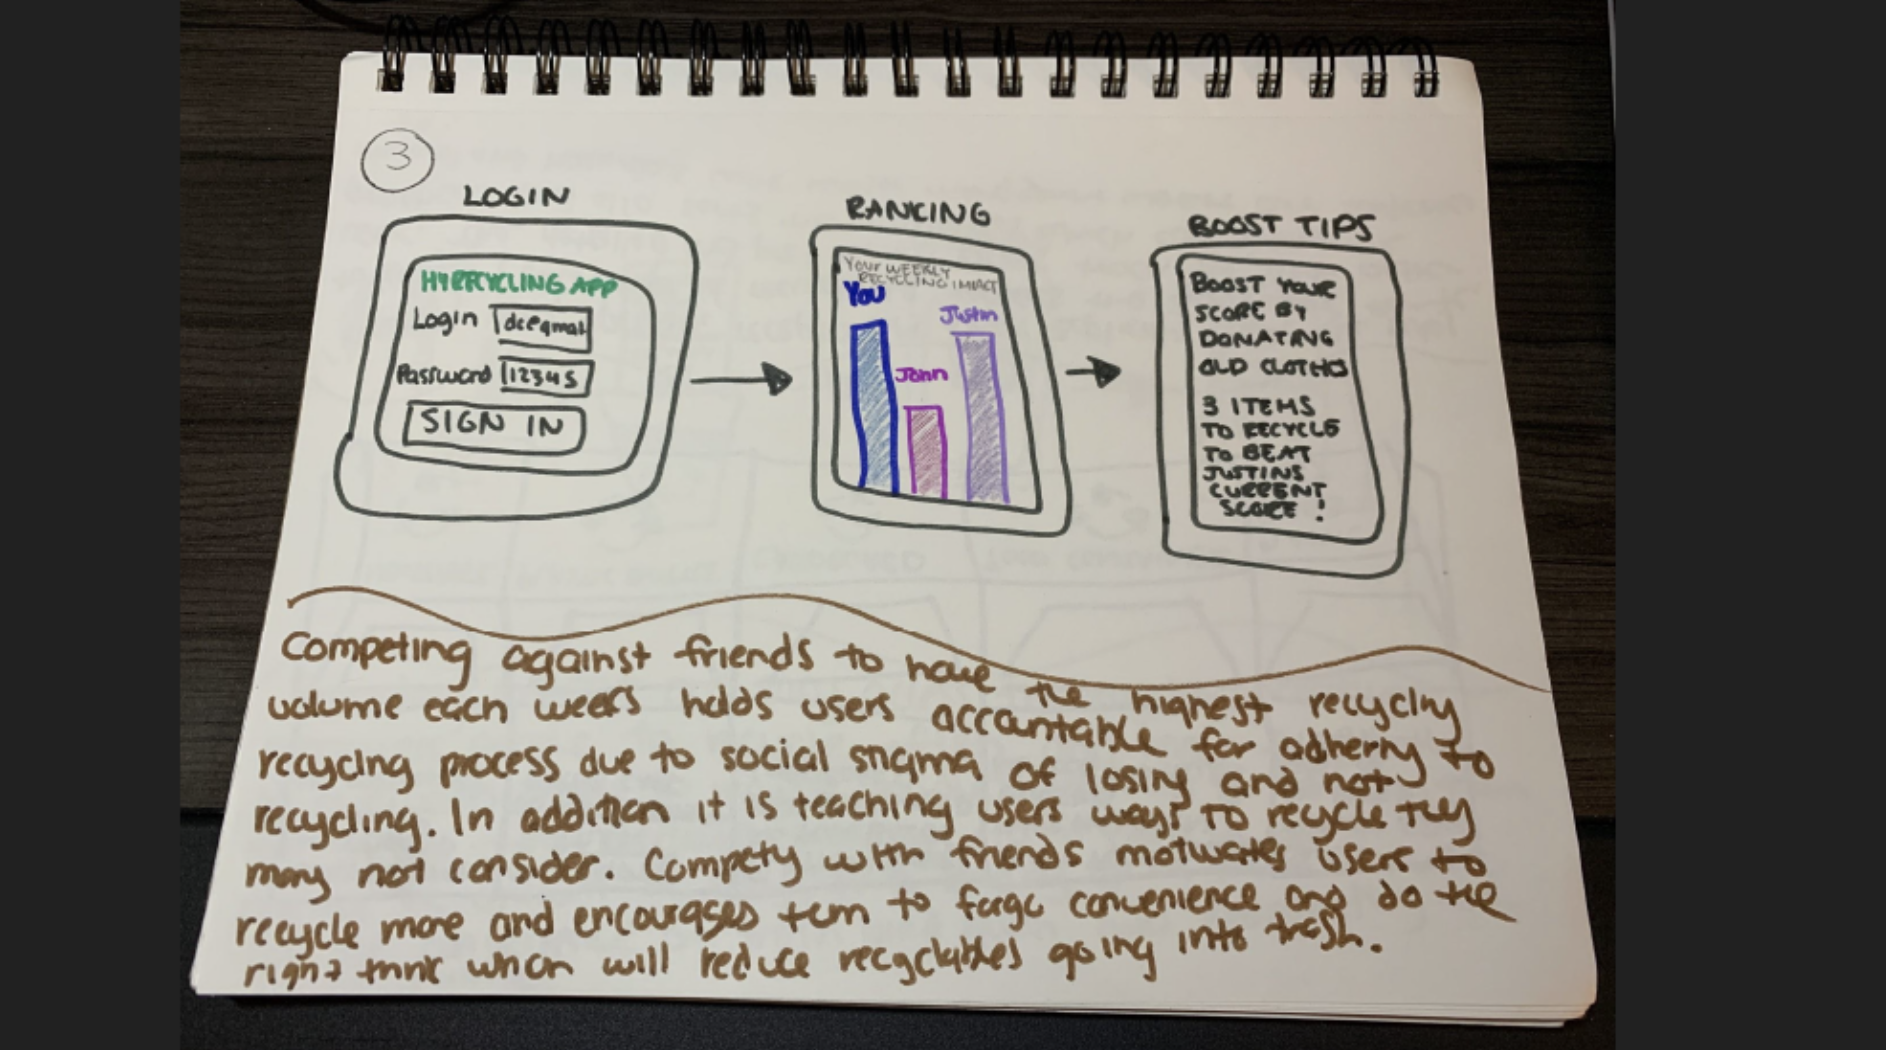 3
LOGIN
RANKING
BOOST TIPS
MYRECYCLING APP
Login
Password 12345
SIGN IN
YOUR WEEKLY
RECYCLING IMPACT
You
Justin
John
BOOST YOUR
SCORE BY
DONATING
OLD CLOTHES
3 ITEMS
TO RECYCLE
TO BEAT
JUSTINS
CURRENT
SCORE!
Competing against friends to have the highest recycling
volume each weeks holds users accountable for adhering to
recycling process due to social stigma of losing and not
recycling. In addition it is teaching users ways to recycle they
may not consider. Competing with friends motivates users to
recycle more and encourages them to forgo convenience and do the
right think which will reduce recyclables going into trash.